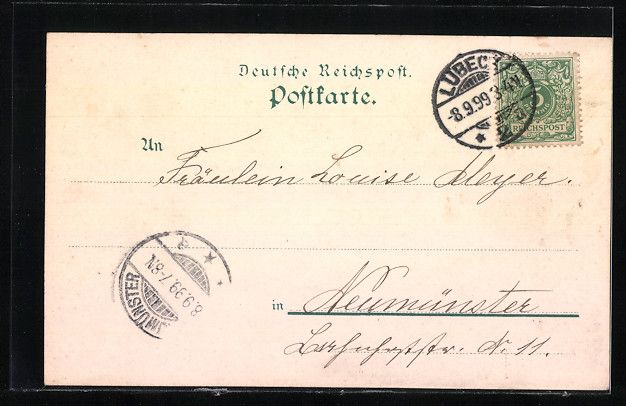 Deutsche Reichspost.
Postkarte.
LÜBECK
-8.9.99.3-4N
REICHSPOST
An
Fräulein Louise Meyer.
NEUMÜNSTER
8.9.99.7-8N.
in Neumünster
N. 11.